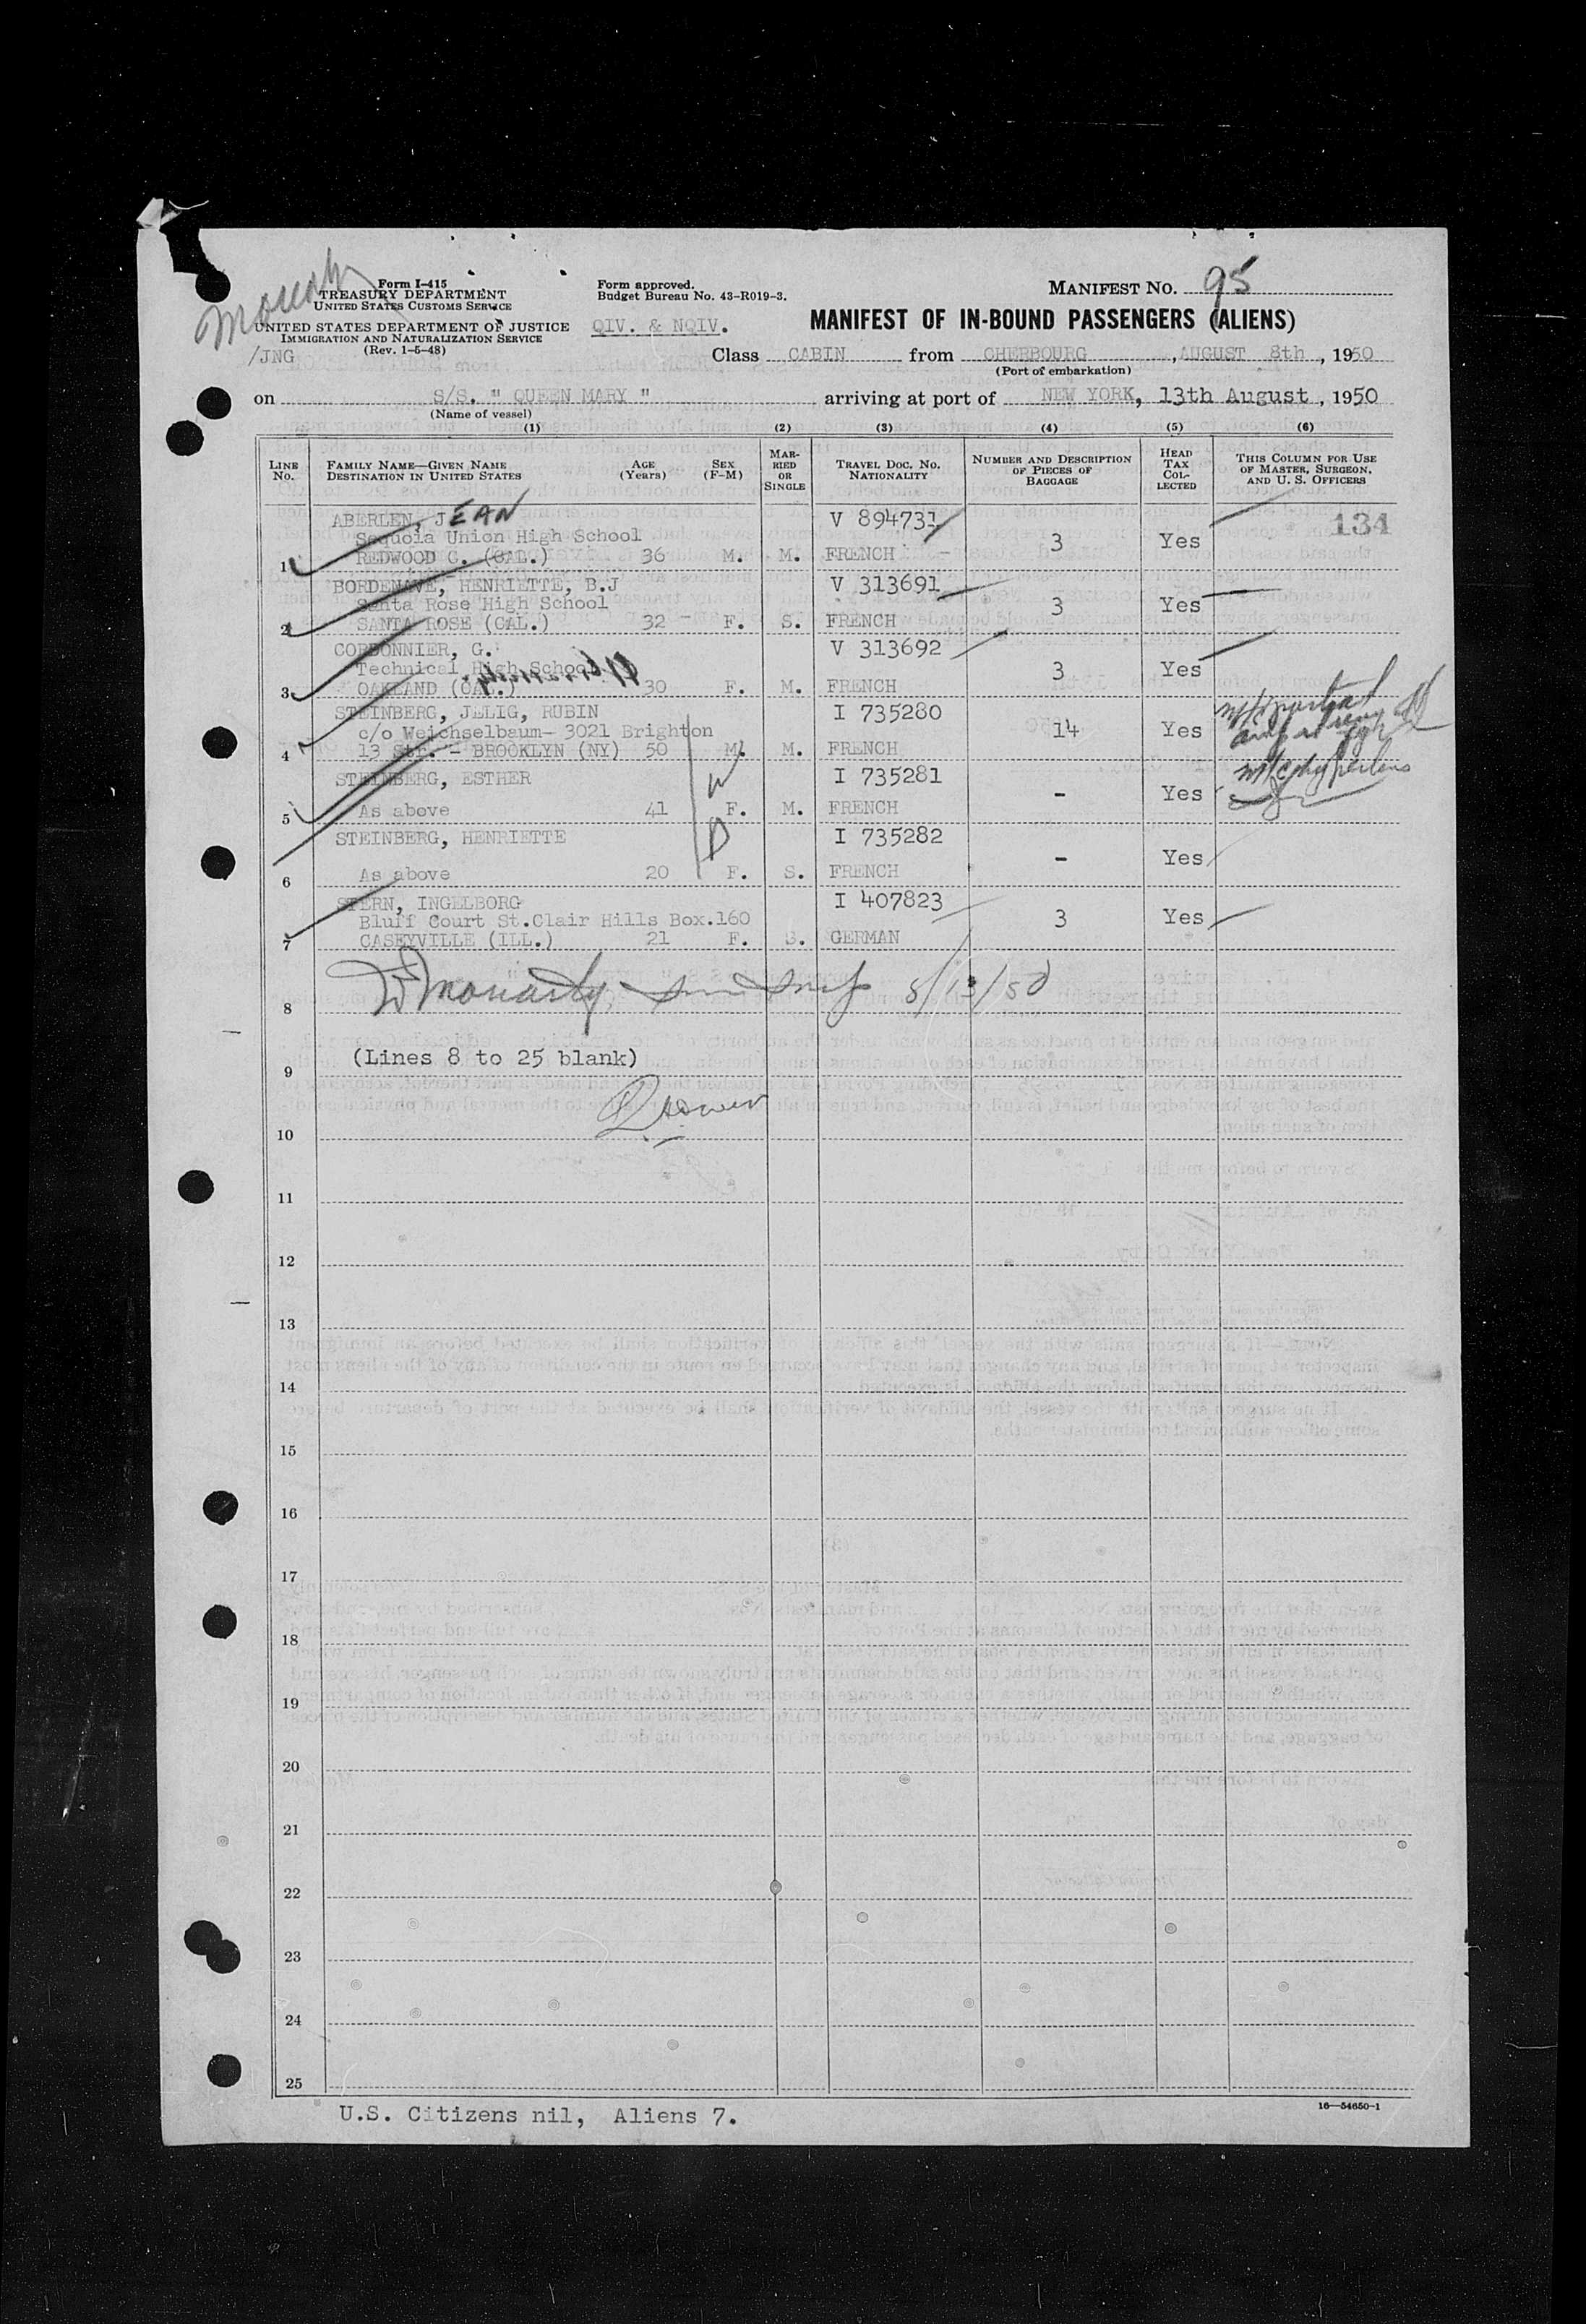 Form I-415
TREASURY DEPARTMENT
UNITED STATES CUSTOMS SERVICE
UNITED STATES DEPARTMENT OF JUSTICE
IMMIGRATION AND NATURALIZATION SERVICE
(Rev. 1-5-48)
/JNG
Form approved.
Budget Bureau No. 43-R019-3.
QIV. & NQIV.
MANIFEST NO. 95
MANIFEST OF IN-BOUND PASSENGERS (ALIENS)
Class CABIN from CHERBOURG, AUGUST 8th, 1950
(Port of embarkation)
on S/S. " QUEEN MARY " arriving at port of NEW YORK, 13th August, 1950
(Name of vessel)
(1) (2) (3) (4) (5) (6)
LINE NO. FAMILY NAME—GIVEN NAME DESTINATION IN UNITED STATES AGE (Years) SEX (F-M) MARRIED OR SINGLE TRAVEL DOC. NO. NATIONALITY NUMBER AND DESCRIPTION OF PIECES OF BAGGAGE HEAD TAX COLLECTED THIS COLUMN FOR USE OF MASTER, SURGEON, AND U. S. OFFICERS
ABERLEN, JEAN V 894731 134
Sequoia Union High School 3 Yes
1 REDWOOD C. (CAL.) 36 M. M. FRENCH
BORDENAVE, HENRIETTE, B.J V 313691
Santa Rose High School 3 Yes
2 SANTA ROSE (CAL.) 32 F. S. FRENCH
CORDONNIER, G. V 313692
Technical High School 3 Yes
3 OAKLAND (CAL.) 30 F. M. FRENCH
STEINBERG, JELIG, RUBIN I 735280
c/o Weichselbaum- 3021 Brighton 14 Yes
4 13 Str. - BROOKLYN (NY) 50 M. M. FRENCH
STEINBERG, ESTHER I 735281
- Yes
5 As above 41 F. M. FRENCH
STEINBERG, HENRIETTE I 735282
- Yes
6 As above 20 F. S. FRENCH
STERN, INGELBORG I 407823
Bluff Court St.Clair Hills Box.160 3 Yes
7 CASEYVILLE (ILL.) 21 F. S. GERMAN
8 Moriarty 8/13/50
9 (Lines 8 to 25 blank)
10
11
12
13
14
15
16
17
18
19
20
21
22
23
24
25
U.S. Citizens nil, Aliens 7.
16—54650-1